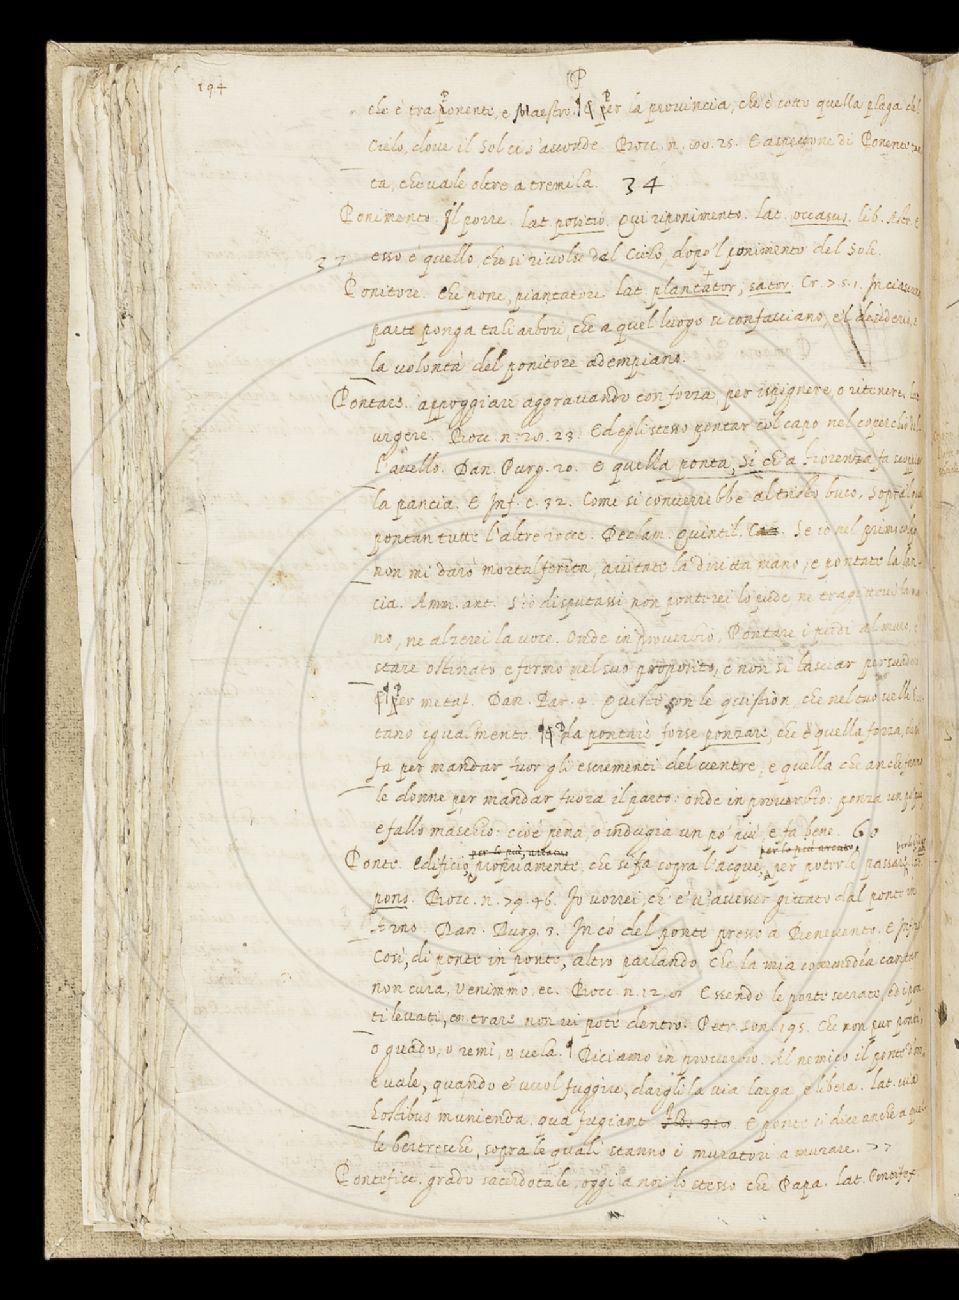 194
P
che è tra ponente, e Maestro. ¶ Per la prouincia, che è sotto quella plaga del
Cielo, doue il Sol ci s'asconde. Bocc. n. 100. 25. di Ponente
ta, che uale oltre a tremila. 34
Ponimento. Il porre. lat. positio. Qui riponimento. lat. occasus. lib. Astr. E
37 esso è quello, che si riuolse del Cielo, dopo 'l ponimento del Sole.
Ponitore. Che pone, piantatore lat. plantator, sator. Cr. 7. 5. 1. In ciascuna
parte ponga tali arbori, che a quel luogo si confacciano, e 'l desiderio, e
la volontà del ponitore adempiano.
Pontare. appoggiare aggrauando con forza, per ispignere, o ritenere, lat.
urgere. Bocc. n. 20. 23. Ed egli stesso pontar col capo nel coperchio del
l'auello. Dan. Purg. 20. E quella ponta, Si che a Fiorenza fa
la pancia. E Inf. c. 32. Come si conuerrebbe al tristo buco, Sopra 'l qual
pontan tutte l'altre rocce. Declam. Quintil. C. Se io nel
non mi darò mortal ferita, aiutate la diritta mano, e pontate la lan-
cia. Amm. ant. S'io disputassi non ponterei lo piede, ne la ma
no, ne alzerei la uoce. Onde in prouerbio, Pontare i piedi al muro,
stare ostinato, e fermo nel suo proposito, e non si lasciar persuadere
¶ Per metaf. Dan. Par. 4. Queste son le quistion, che nel tuo uelle
tano igualmente. ¶ Da pontare forse ponzare, che è quella forza, che si
fa per mandar fuor gli escrementi del uentre, e quella che anche fanno
le donne per mandar fuora il parto: onde in prouerbio: ponza un po' più,
e fallo maschio: cioè pena, o indugia un po' più, e fa bene. 60
per lo più, arcato per lo più arcato,
Ponte. Edificio propriamente, che si fa sopra l'acque, per poterle passare, lat.
pons. Bocc. n. 79. 46. Io uorrei, ch' e' u' auesser gittato dal ponte in
Arno. Dan. Purg. 3. In cò del ponte presso a Beneuento. E Inf. 21
Così, di ponte in ponte, altro parlando Che la mia commedìa cantar
non cura, Venimmo, ec. Bocc. n. 12. 6. Essendo le porte serrate, ed i pon
ti leuati, entrare non ui potè dentro. Petr. Son. 195. Che non pur ponti,
o guado, o remi, o uela. ¶ Diciamo in prouerbio. Al nemico il ponte d'oro,
e uale, quando e' uuol fuggire, dargli la uia larga e libera. lat. uia
hostibus munienda, qua fugiant. E ponte si dice anche a quel
le bertesche, sopra le quali stanno i muratori a murare. 77
Pontefice. grado sacerdotale, oggi a noi lo stesso che Papa. lat. Pontifex